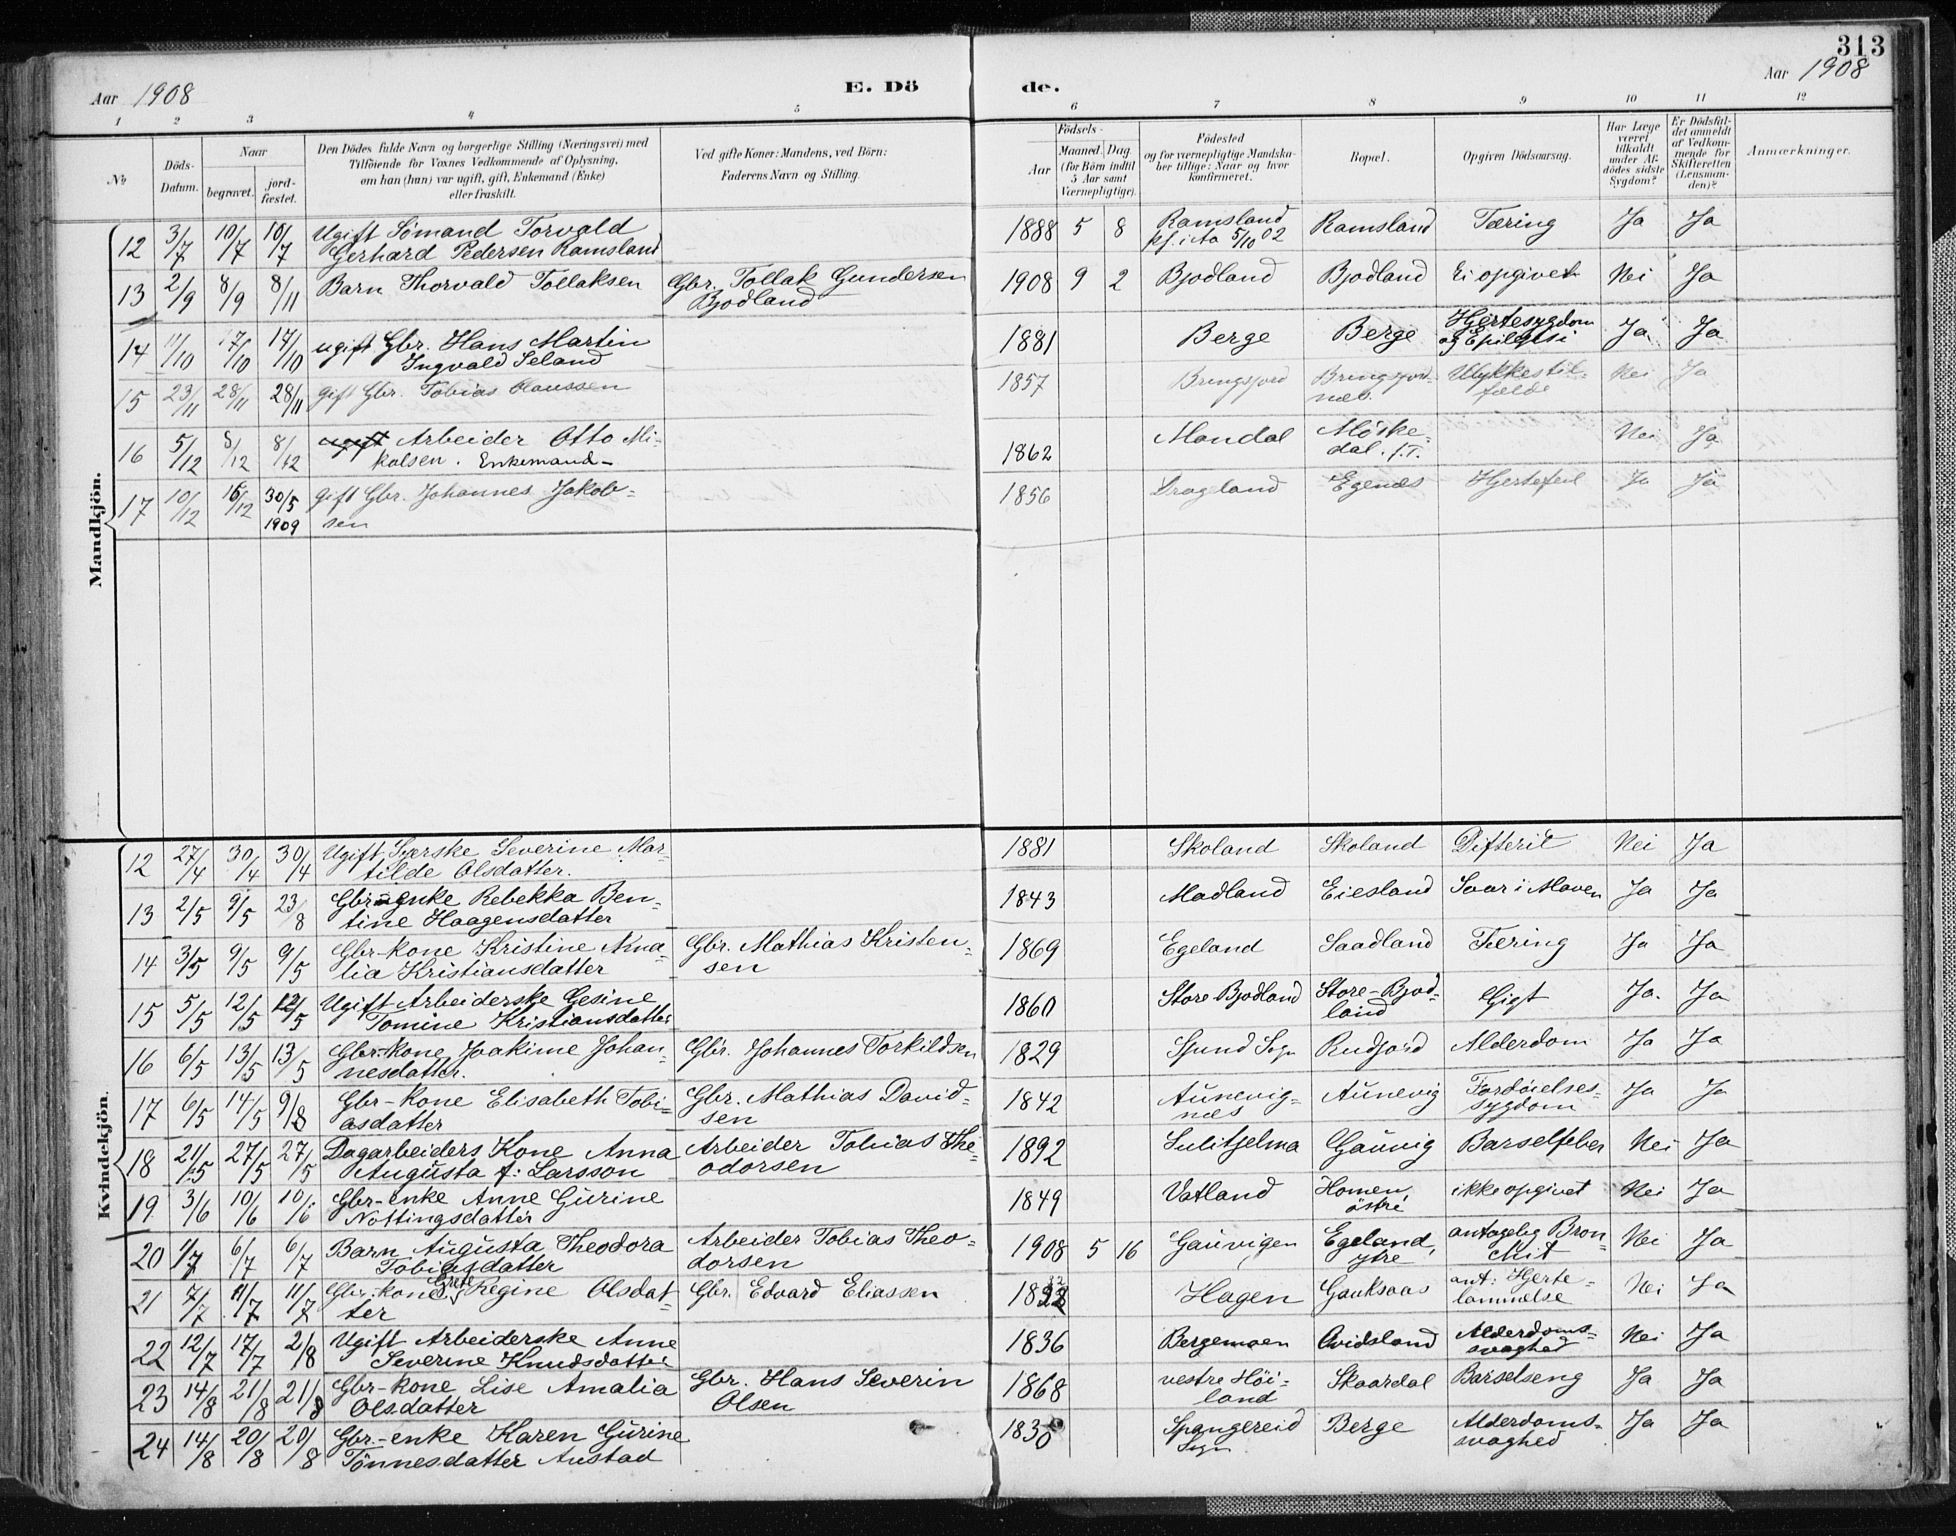 313
Aar 1908
E. Dö
de.
Aar 1908
1 2 3 4 5 6 7 8 9 10 11 12
No
Döds-
Datum.
Naar
begravet.
jord-
fæstet.
Den Dödes fulde Navn og borgerlige Stilling (Næringsvei) med
Tilföiende for Voxnes Vedkommende af Oplysning,
om han (hun) var ugift, gift, Enkemand (Enke)
eller fraskilt.
Ved gifte Koner: Mandens, ved Börn:
Faderens Navn og Stilling.
Födsels-
Aar
Maaned.
Dag
(for Börn indtil
5 Aar samt
Værnepligtige).
Födested
og for værnepligtige Mandska-
ber tillige: Naar og hvor
konfirmeret.
Bopæl.
Opgiven Dödsaarsag.
Har Læge
været
tilkaldt
under Af-
dödes sidste
Sygdom?
Er Dödsfal-
det anmeldt
af Vedkom-
mende for
Skifteretten
(Lensman-
den)?
Anmærkninger.
Mandkjön.
12 3/7 10/7 10/7 Ugift Sömand Torvald 1888 5 8 Ramsland Ramsland Tæring Ja Ja
Gerhard Pedersen Ramsland 5/10 02
13 2/9 8/9 8/11 Barn Thorvald Tollaksen Gbr. Tollak Gundersen 1908 9 2 Bjodland Bjodland Ei opgivet Nei Ja
Bjodland
14 11/10 17/10 17/10 ugift Gbr. Hans Martin 1881 Berge Berge Hjertesygdom Ja Ja
Ingvald Seland og Epilepsi
15 23/11 28/11 28/11 gift Gbr. Tobias Claussen 1857 Bringsjord Bringsjord- Ulykkestil- Nei Ja
næs. fælde
16 5/12 8/12 8/12 ugift Arbeider Otto Mi- 1862 Mandal Möske- Nei Ja
kalsen. Enkemand- dal. f.T.
17 10/12 16/12 30/5 gift Gbr. Johannes Jakob- 1856 Drageland Egenæs Hjertefeil Ja Ja
1909 sen
Kvindekjön.
12 27/4 30/4 30/4 Ugift Syerske Severine Mar- 1881 Skoland Skoland Difterit Nei Ja
tilde Olsdatter.
13 2/5 9/5 23/8 Gbr-enke Rebekka Ben- 1843 Madland Eiesland Saar i Maven Ja Ja
tine Haagensdatter
14 3/5 9/5 9/5 Gbr-kone Kristine Ama- Gbr. Mathias Kristen- 1869 Egeland Saadland Tæring Ja Ja
lia Kristiansdatter sen
15 5/5 12/5 12/5 Ugift Arbeiderske Gesine 1860 Store Bjodland Store-Bjod- Gigt Ja. Ja
Tomine Kristiansdatter land
16 6/5 13/5 13/5 Gbr-kone Joakime Johan- Gbr. Johannes Torkildsen 1829 Sogn Rudjord Alderdom Ja Ja
nesdatter.
17 6/5 14/5 9/8 Gbr-kone Elisabeth Tobi- Gbr. Mathias David- 1842 Aunevig- Aunevig Fordöielses- Ja Ja
asdatter sen næs sygdom
18 21/5 27/5 27/5 Dagarbeiders Kone Anna Arbeider Tobias The- 1892 Sulitjelma Gaúvig Barselfeber Nei Ja
Augusta f: Larsson odorsen
19 3/6 10/6 10/6 Gbr-enke Anne Gurine 1849 Vatland Homen, ikke opgivet Nei Ja
Nottingsdatter östre
20 1/7 6/7 6/7 Barn Augusta Theodora Arbeider Tobias Theo- 1908 5 16 Gaúvigen Egeland, antagelig Bron- Nei Ja
Tobiasdatter dorsen ytre chit
21 7/7 11/7 11/7 Gbr-kone Grete Regine Olsdat- Gbr. Edvard Eliassen Hagen Gauksaas ant: Hjerte- Nei Ja
ter lammelse
22 12/7 17/7 2/8 Ugift Arbeiderske Anne 1836 Bergemoen Qvidsland Alderdoms- Nei Ja
Severine Knudsdatter svaghed
23 14/8 21/8 21/8 Gbr-kone Lise Amalia Gbr. Hans Severin 1868 vestre Höi- Skaardal Barselseng Ja Ja
Olsdatter Olsen land
24 14/8 20/8 20/8 Gbr-enke Karen Gurine 1830 Spangereid Berge Alderdoms- Ja Ja
Tönnesdatter Austad Sogn svaghed